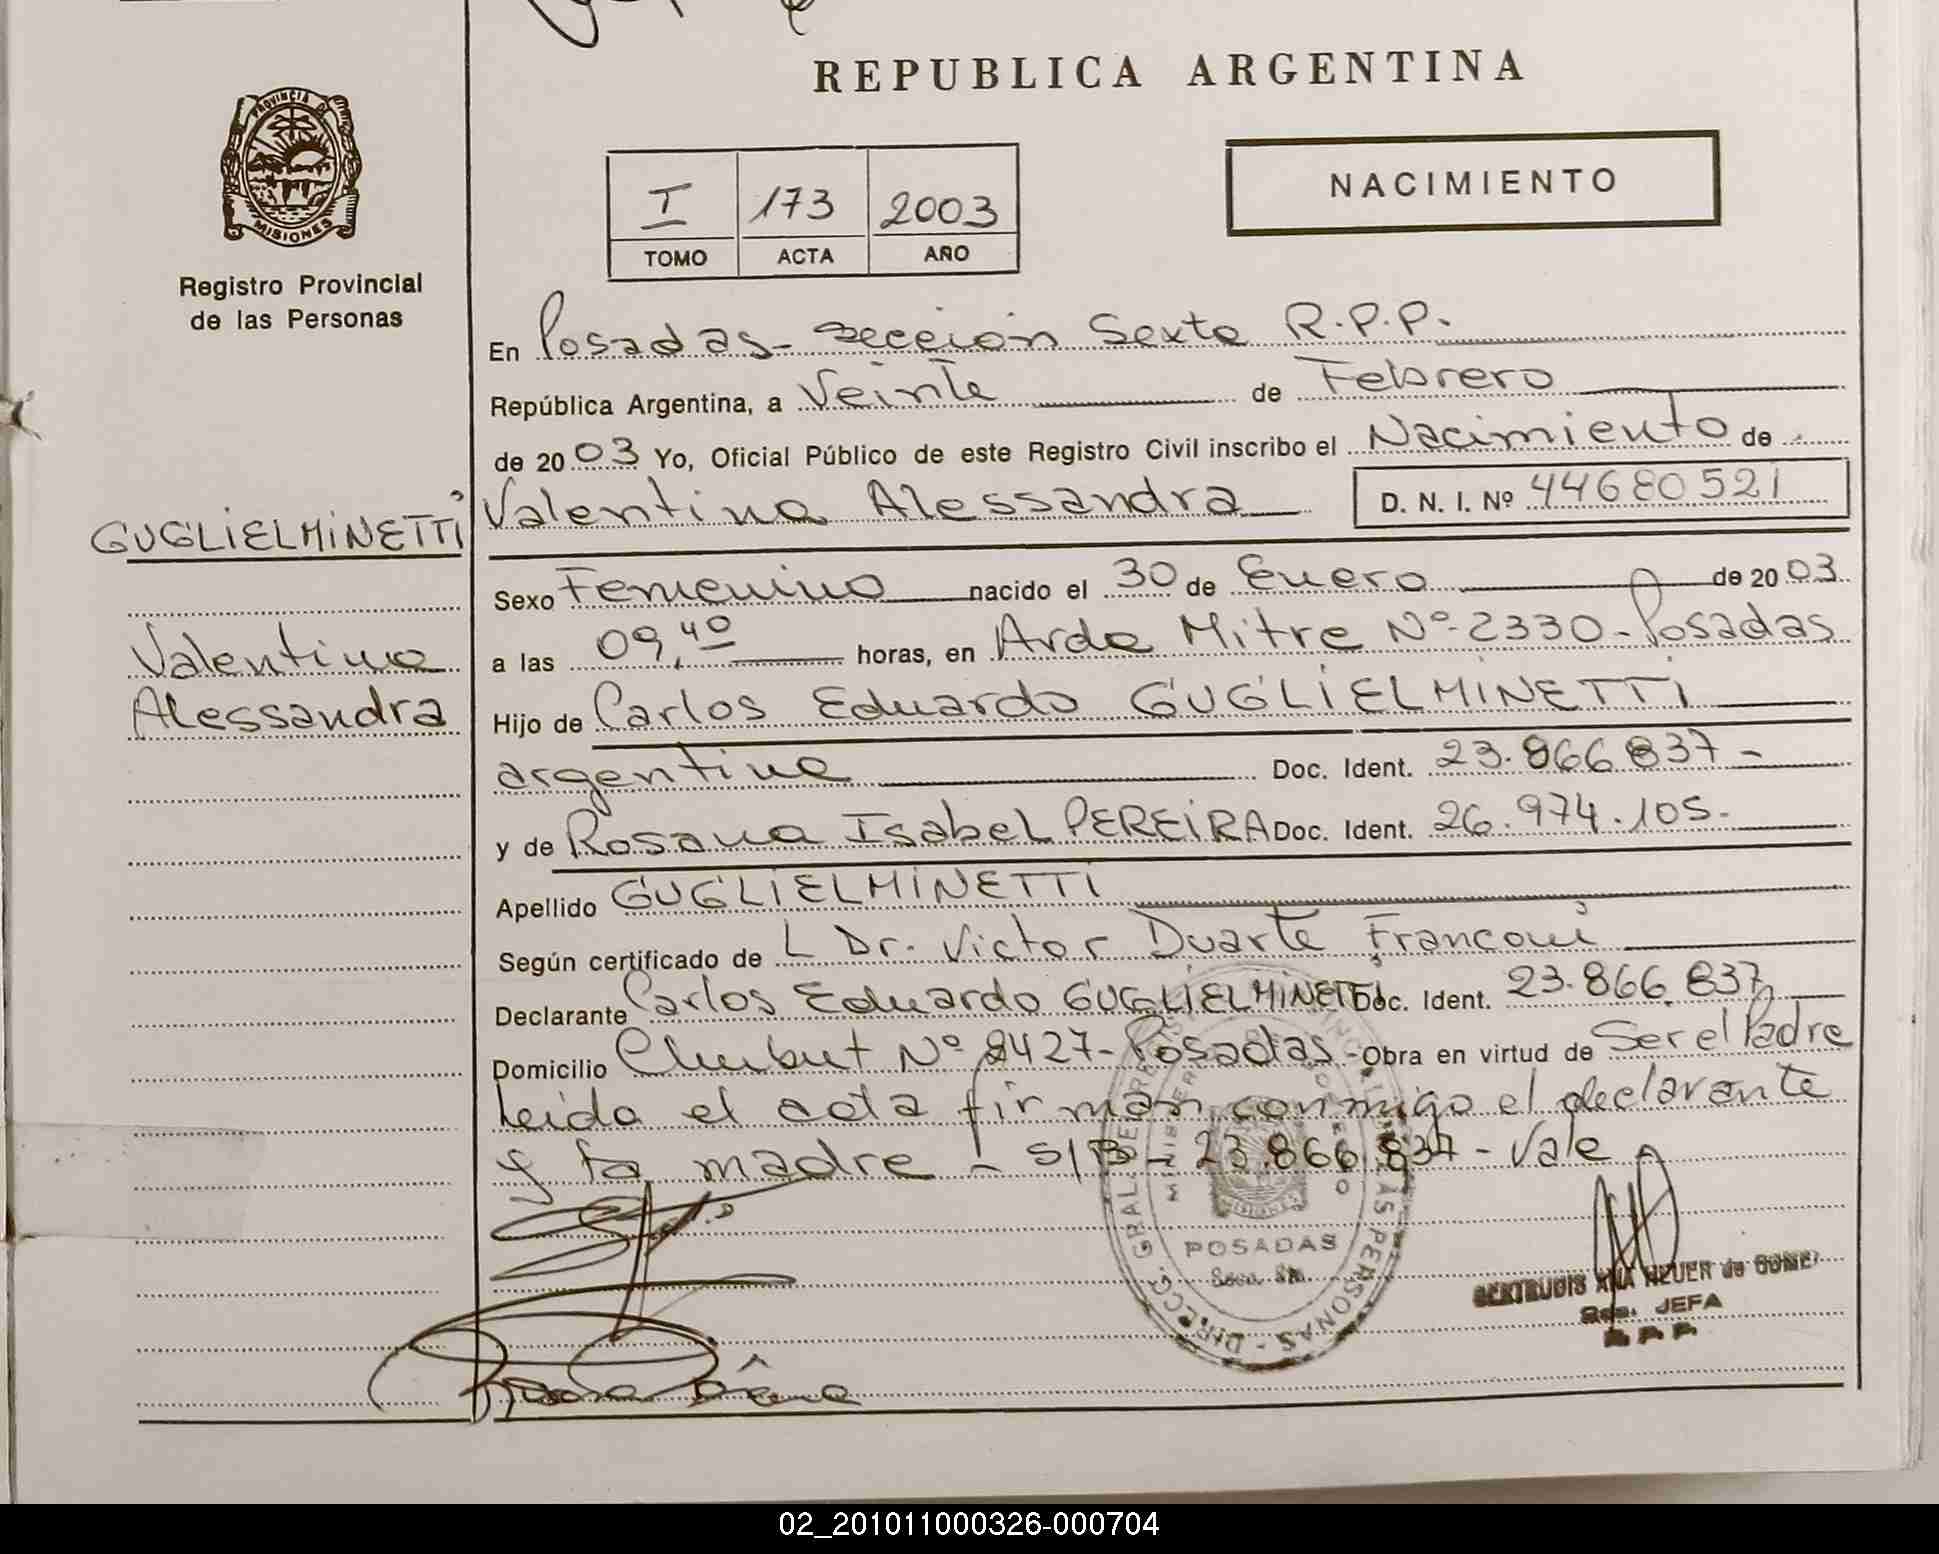 REPUBLICA ARGENTINA
PROVINCIA DE
MISIONES
Registro Provincial
de las Personas
I 173 2003
TOMO ACTA AÑO
NACIMIENTO
En Posadas - Sección Sexta R.P.P.
República Argentina, a Veinte de Febrero
de 2003 Yo, Oficial Público de este Registro Civil inscribo el Nacimiento de
Valentina Alessandra D. N. I. Nº 44680521
GUGLIELMINETTI
Valentina
Alessandra
Sexo Femenino nacido el 30 de Enero de 2003
a las 09,40 horas, en Avda Mitre Nº 2330 - Posadas
Hijo de Carlos Eduardo GUGLIELMINETTI
argentina Doc. Ident. 23.866.837 -
y de Rosana Isabel PEREIRA Doc. Ident. 26.974.105.-
Apellido GUGLIELMINETTI
Según certificado de L Dr. Victor Duarte Franconi
Declarante Carlos Eduardo GUGLIELMINETTI Doc. Ident. 23.866.837
Domicilio Chubut Nº 2427 - Posadas - Obra en virtud de Ser el Padre
Leida el acta firman conmigo el declarante
y la madre - S/B - 23.866.837 - Vale
POSADAS
Secc. 6ta.
GERTRUDIS ANA de GOMEZ
JEFA
R P P
02_201011000326-000704